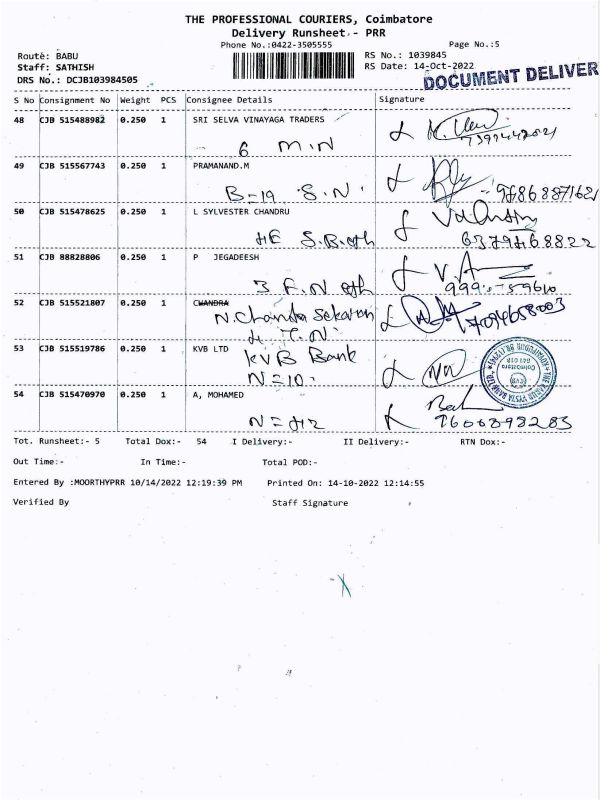 THE PROFESSIONAL COURIERS, Coimbatore
Delivery Runsheet - PRR
Phone No.:0422-3505555
Page No.:5
Route: BABU
RS No.: 1039845
Staff: SATHISH
RS Date: 14-Oct-2022
DRS No.: DCJB103984505
DOCUMENT DELIVER
S No Consignment No Weight PCS Consignee Details Signature
48 CJB 515488982 0.250 1 SRI SELVA VINAYAGA TRADERS
6 MIN
49 CJB 515567743 0.250 1 PRAMANAND.M
B=19 S.N.
50 CJB 515478625 0.250 1 L SYLVESTER CHANDRU
6379468822
51 CJB 88828806 0.250 1 P JEGADEESH
3 F.N
52 CJB 515521807 0.250 1 CHANDRA
N. Chandra Sekaran
7094658003
53 CJB 515519786 0.250 1 KVB LTD
KVB Bank
N=10.
54 CJB 515470970 0.250 1 A, MOHAMED
Tot. Runsheet:- 5 Total Dox:- 54 I Delivery:- II Delivery:- RTN Dox:-
Out Time:- In Time:- Total POD:-
Entered By :MOORTHYPRR 10/14/2022 12:19:39 PM Printed On: 14-10-2022 12:14:55
Verified By Staff Signature